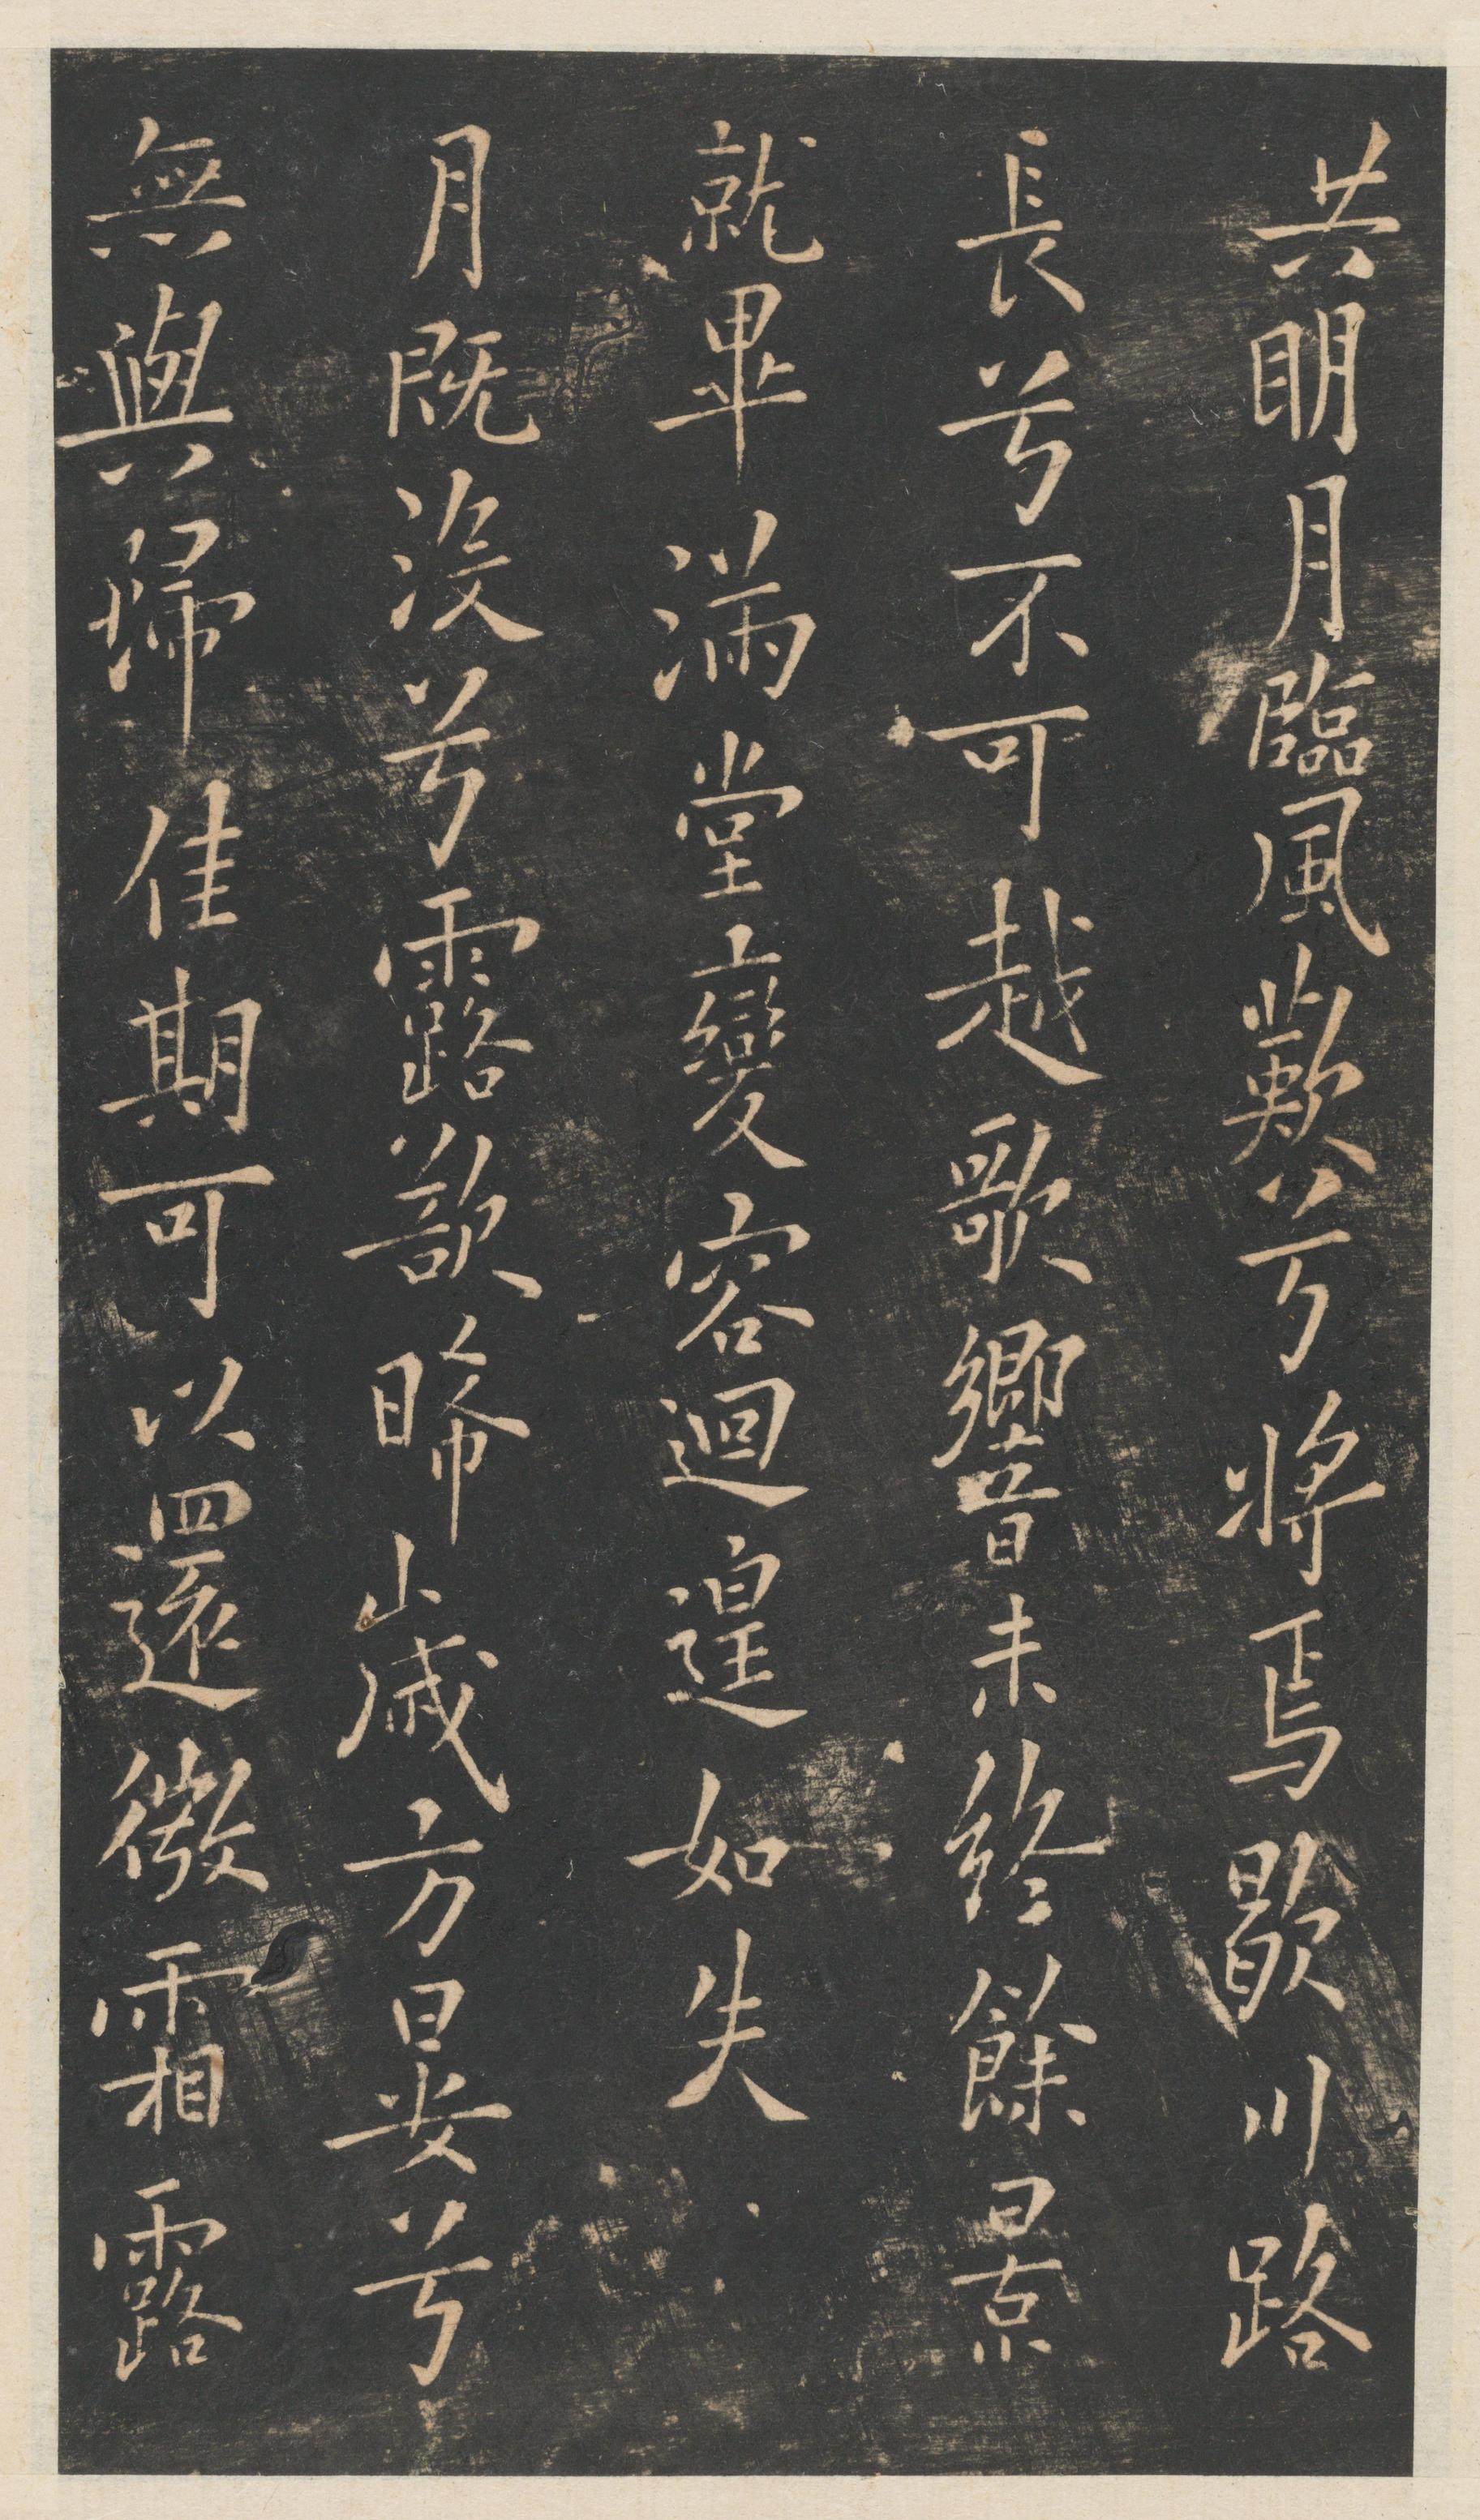 共明月臨風歎兮將焉歇川路
長兮不可越歌響未終餘景
就畢滿堂變容迴遑如失
月既没兮露欲晞歲方晏兮
無與歸佳期可以還微霜露